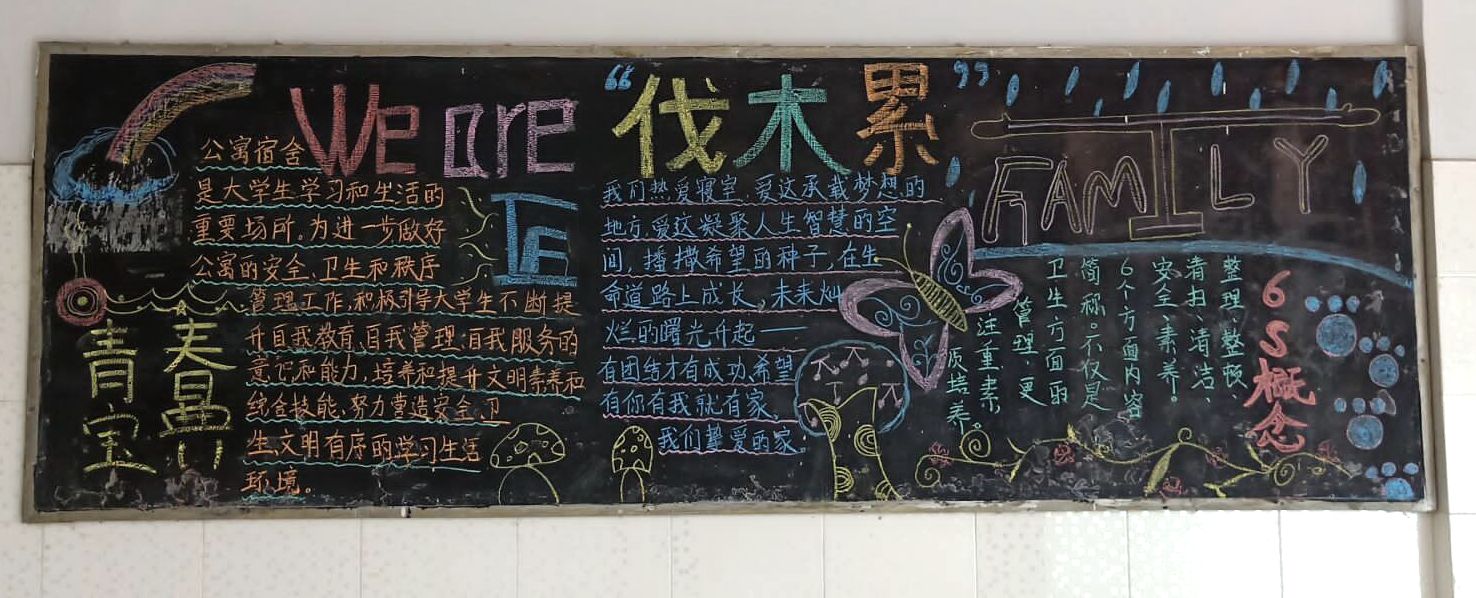 We are “伐木累”
FAMILY
公寓宿舍
是大学生学习和生活的
重要场所。为进一步做好
公寓的安全、卫生和秩序
管理工作,积极引导大学生不断提
升自我教育、自我管理、自我服务的
意识和能力,培养和提升文明素养和
综合技能,努力营造安全、卫
生、文明有序的学习生活
环境。
青春
宝典
我们热爱寝室,爱这承载梦想的
地方,爱这凝聚人生智慧的空
间,播撒希望的种子,在生
命道路上成长,未来灿
烂的曙光升起——
有团结才有成功、希望
有你有我就有家、
我们挚爱的家。
6S概念
整理、整顿、
清扫、清洁、
安全、素养。
6个方面内容
简称。不仅是
卫生方面的
管理,更
注重素
质培养。